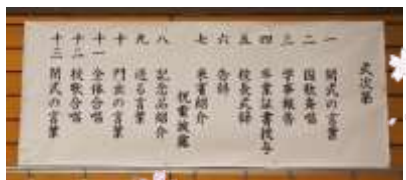 式次第
一 開式の言葉
二 国歌斉唱
三 学事報告
四 卒業証書授与
五 校長式辞
六 告辞
七 来賓紹介
祝電披露
八 記念品紹介
九 送る言葉
十 門出の言葉
十一 全体合唱
十二 校歌合唱
十三 閉式の言葉